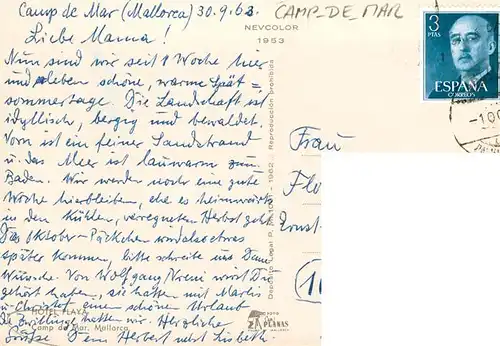 Camp de Mar (Mallorca) 30.9.63.
Liebe Mama!
Nun sind wir seit 1 Woche hier
und leben schöne, warme Spät=
sommertage. Die Landschaft ist
idyllisch, bergig und bewaldet.
Vorn ist ein feiner Sandstrand
u. das Meer ist lauwarm zum
Baden. Wir werden noch eine gute
Woche hierbleiben, ehe es heimwärts
in den kühlen, verregneten Herbst geht.
Das Oktober-Päckchen wird also etwas
später kommen, bitte schreib uns Deine
Wünsche. Von Wolfgang/Vreni wirst Du
gehört haben, sie hatten mit Marlis
u. Christof einen schönen Urlaub
Die Zwillinge hatten wir. Herzliche
Grüsse Dein Herbert nebst Lisbeth
HOTEL PLAYA
Camp de Mar. Mallorca
CAMP-DE MAR
NEVCOLOR
1953
Reproducción prohibida
Depósito Legal P. M. - 1962
FOTO
PLANAS
Frau
Flo
Ernst-
(1
3
PTAS
ESPAÑA
CORREOS
-1.OC